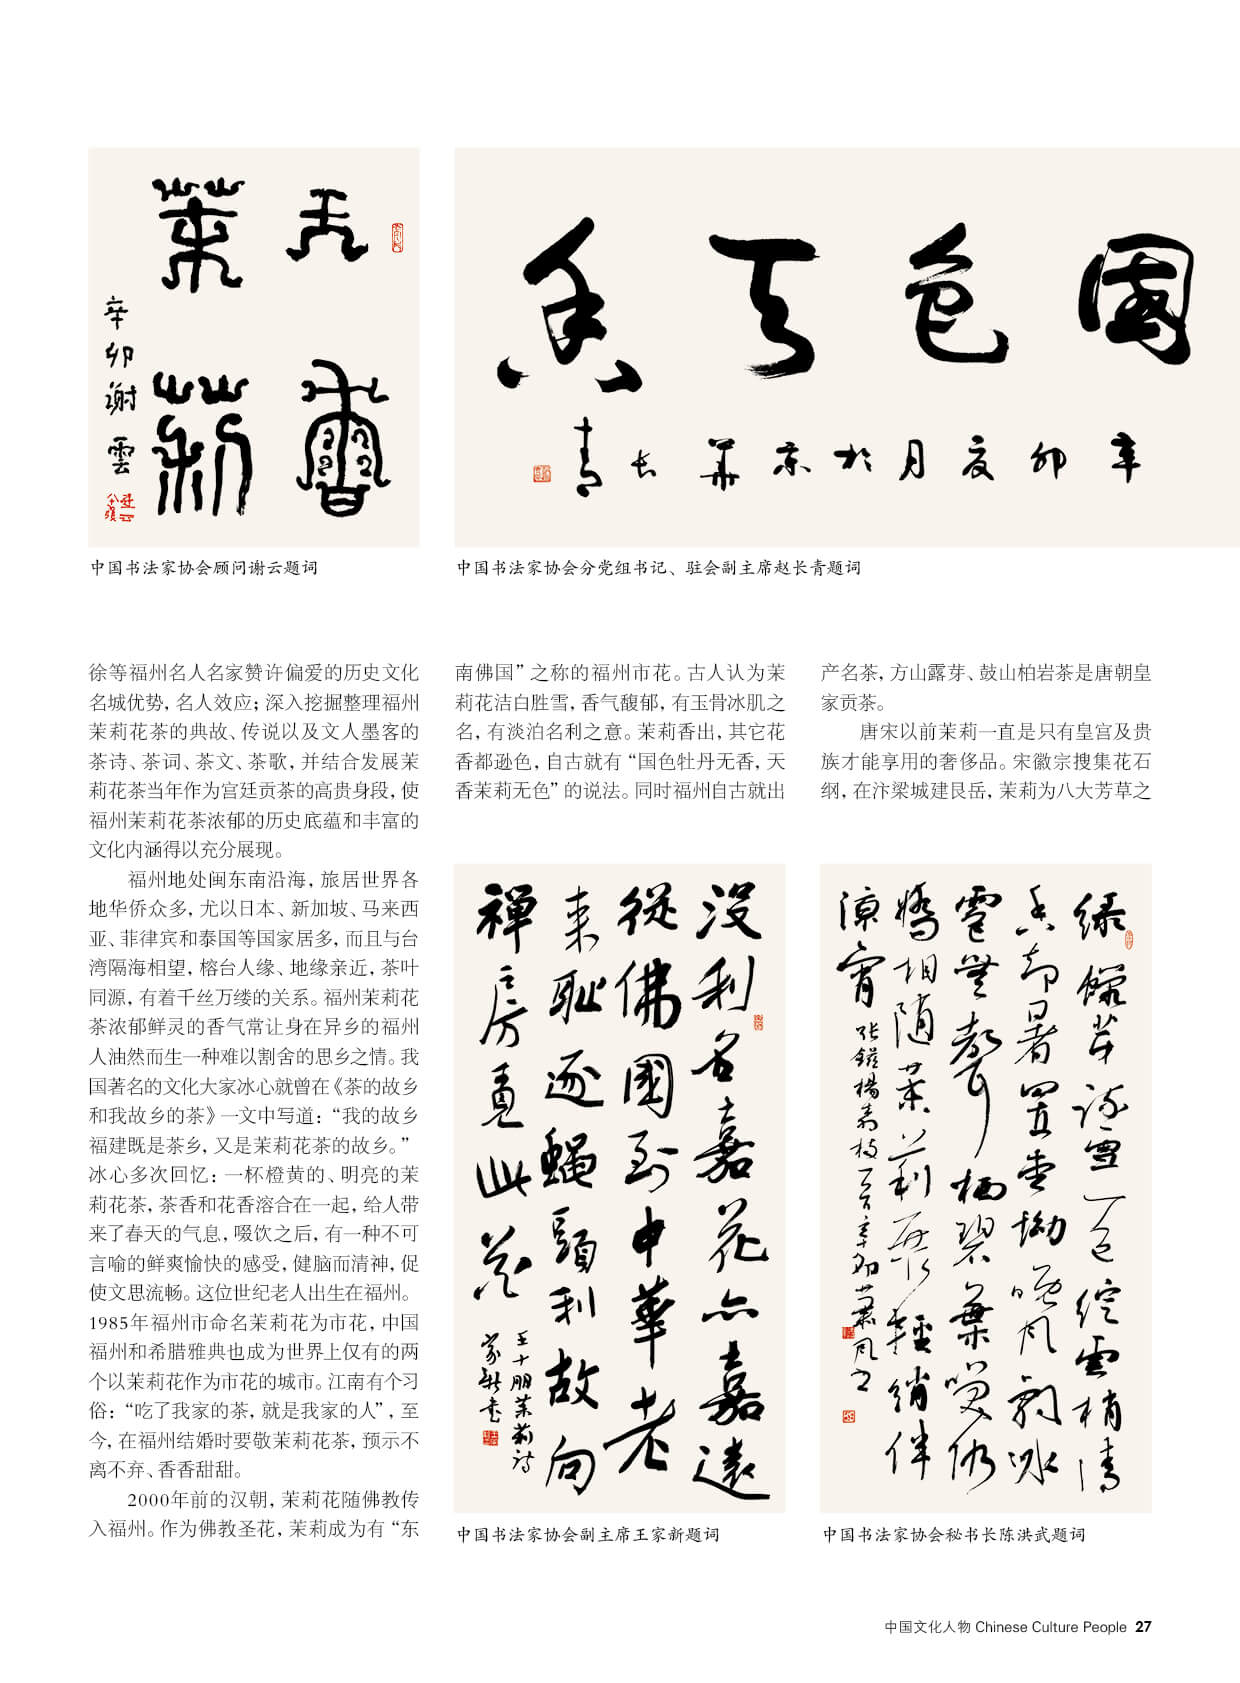 天香
茉莉
辛卯谢雲
中国书法家协会顾问谢云题词
国色天香
辛卯夏月於京華长青
中国书法家协会分党组书记、驻会副主席赵长青题词
徐等福州名人名家赞许偏爱的历史文化
名城优势，名人效应；深入挖掘整理福州
茉莉花茶的典故、传说以及文人墨客的
茶诗、茶词、茶文、茶歌，并结合发展茉
莉花茶当年作为宫廷贡茶的高贵身段，使
福州茉莉花茶浓郁的历史底蕴和丰富的
文化内涵得以充分展现。
福州地处闽东南沿海，旅居世界各
地华侨众多，尤以日本、新加坡、马来西
亚、菲律宾和泰国等国家居多，而且与台
湾隔海相望，榕台人缘、地缘亲近，茶叶
同源，有着千丝万缕的关系。福州茉莉花
茶浓郁鲜灵的香气常让身在异乡的福州
人油然而生一种难以割舍的思乡之情。我
国著名的文化大家冰心就曾在《茶的故乡
和我故乡的茶》一文中写道：“我的故乡
福建既是茶乡，又是茉莉花茶的故乡。”
冰心多次回忆：一杯橙黄的、明亮的茉
莉花茶，茶香和花香溶合在一起，给人带
来了春天的气息，啜饮之后，有一种不可
言喻的鲜爽愉快的感受，健脑而清神，促
使文思流畅。这位世纪老人出生在福州。
1985年福州市命名茉莉花为市花，中国
福州和希腊雅典也成为世界上仅有的两
个以茉莉花作为市花的城市。江南有个习
俗：“吃了我家的茶，就是我家的人”，至
今，在福州结婚时要敬茉莉花茶，预示不
离不弃、香香甜甜。
2000年前的汉朝，茉莉花随佛教传
入福州。作为佛教圣花，茉莉成为有“东
南佛国”之称的福州市花。古人认为茉
莉花洁白胜雪，香气馥郁，有玉骨冰肌之
名，有淡泊名利之意。茉莉香出，其它花
香都逊色，自古就有“国色牡丹无香，天
香茉莉无色”的说法。同时福州自古就出
产名茶，方山露芽、鼓山柏岩茶是唐朝皇
家贡茶。
唐宋以前茉莉一直是只有皇宫及贵
族才能享用的奢侈品。宋徽宗搜集花石
纲，在汴梁城建艮岳，茉莉为八大芳草之
没利名嘉花亦嘉遠
從佛國到中華老
来耻逐蝇頭利故向
禪房覓此花
王十朋茉莉诗
家新书
中国书法家协会副主席王家新题词
中国书法家协会秘书长陈洪武题词
中国文化人物 Chinese Culture People 27